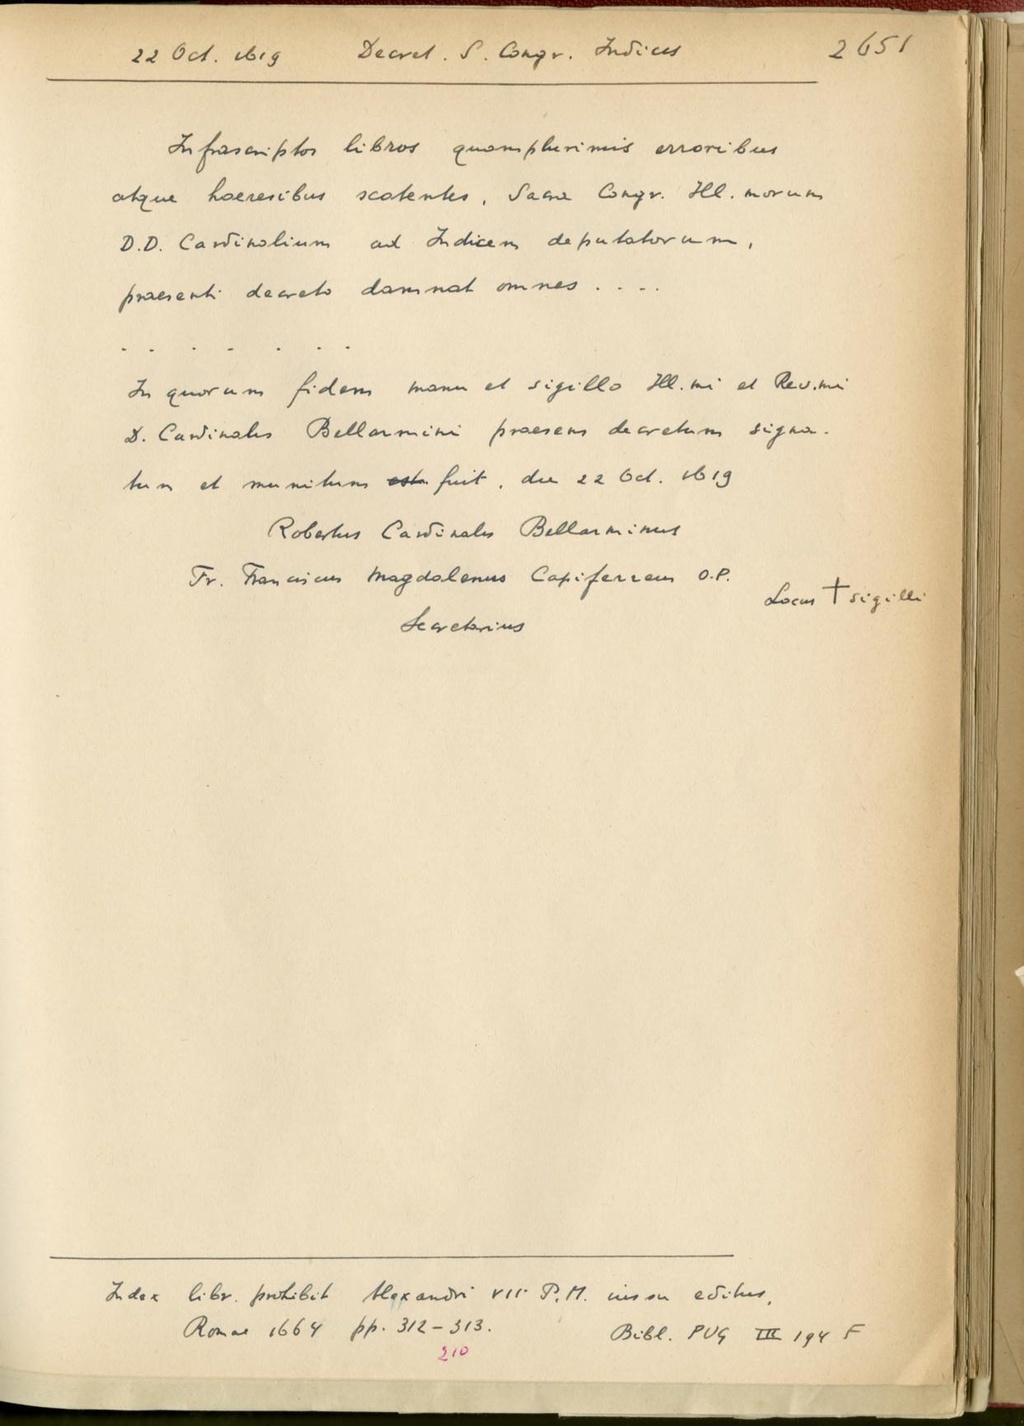 22 Oct. 1619 Decret. S. Congr. Indicis 2651
Infrascriptos libros quamplurimis erroribus
atque haeresibus scatentes, Sacra Congr. Ill.morum
D.D. Cardinalium ad Indicem deputatorum,
praesenti decreto damnat omnes . . . .
. . . . . . .
In quorum fidem manu et sigillo Ill.mi et Rev.mi
D. Cardinalis Bellarmini praesens decretum signa-
tum et munitum fuit, die 22 Oct. 1619
Robertus Cardinalis Bellarminus
Fr. Franciscus Magdalenus Capiferreus O.P.
Locus † sigilli
Secretarius
Index libr. prohibit Alexandri VII P.M. iussu editus,
Romae 1664 pp. 312-313. Bibl. PUG III 194 F
210